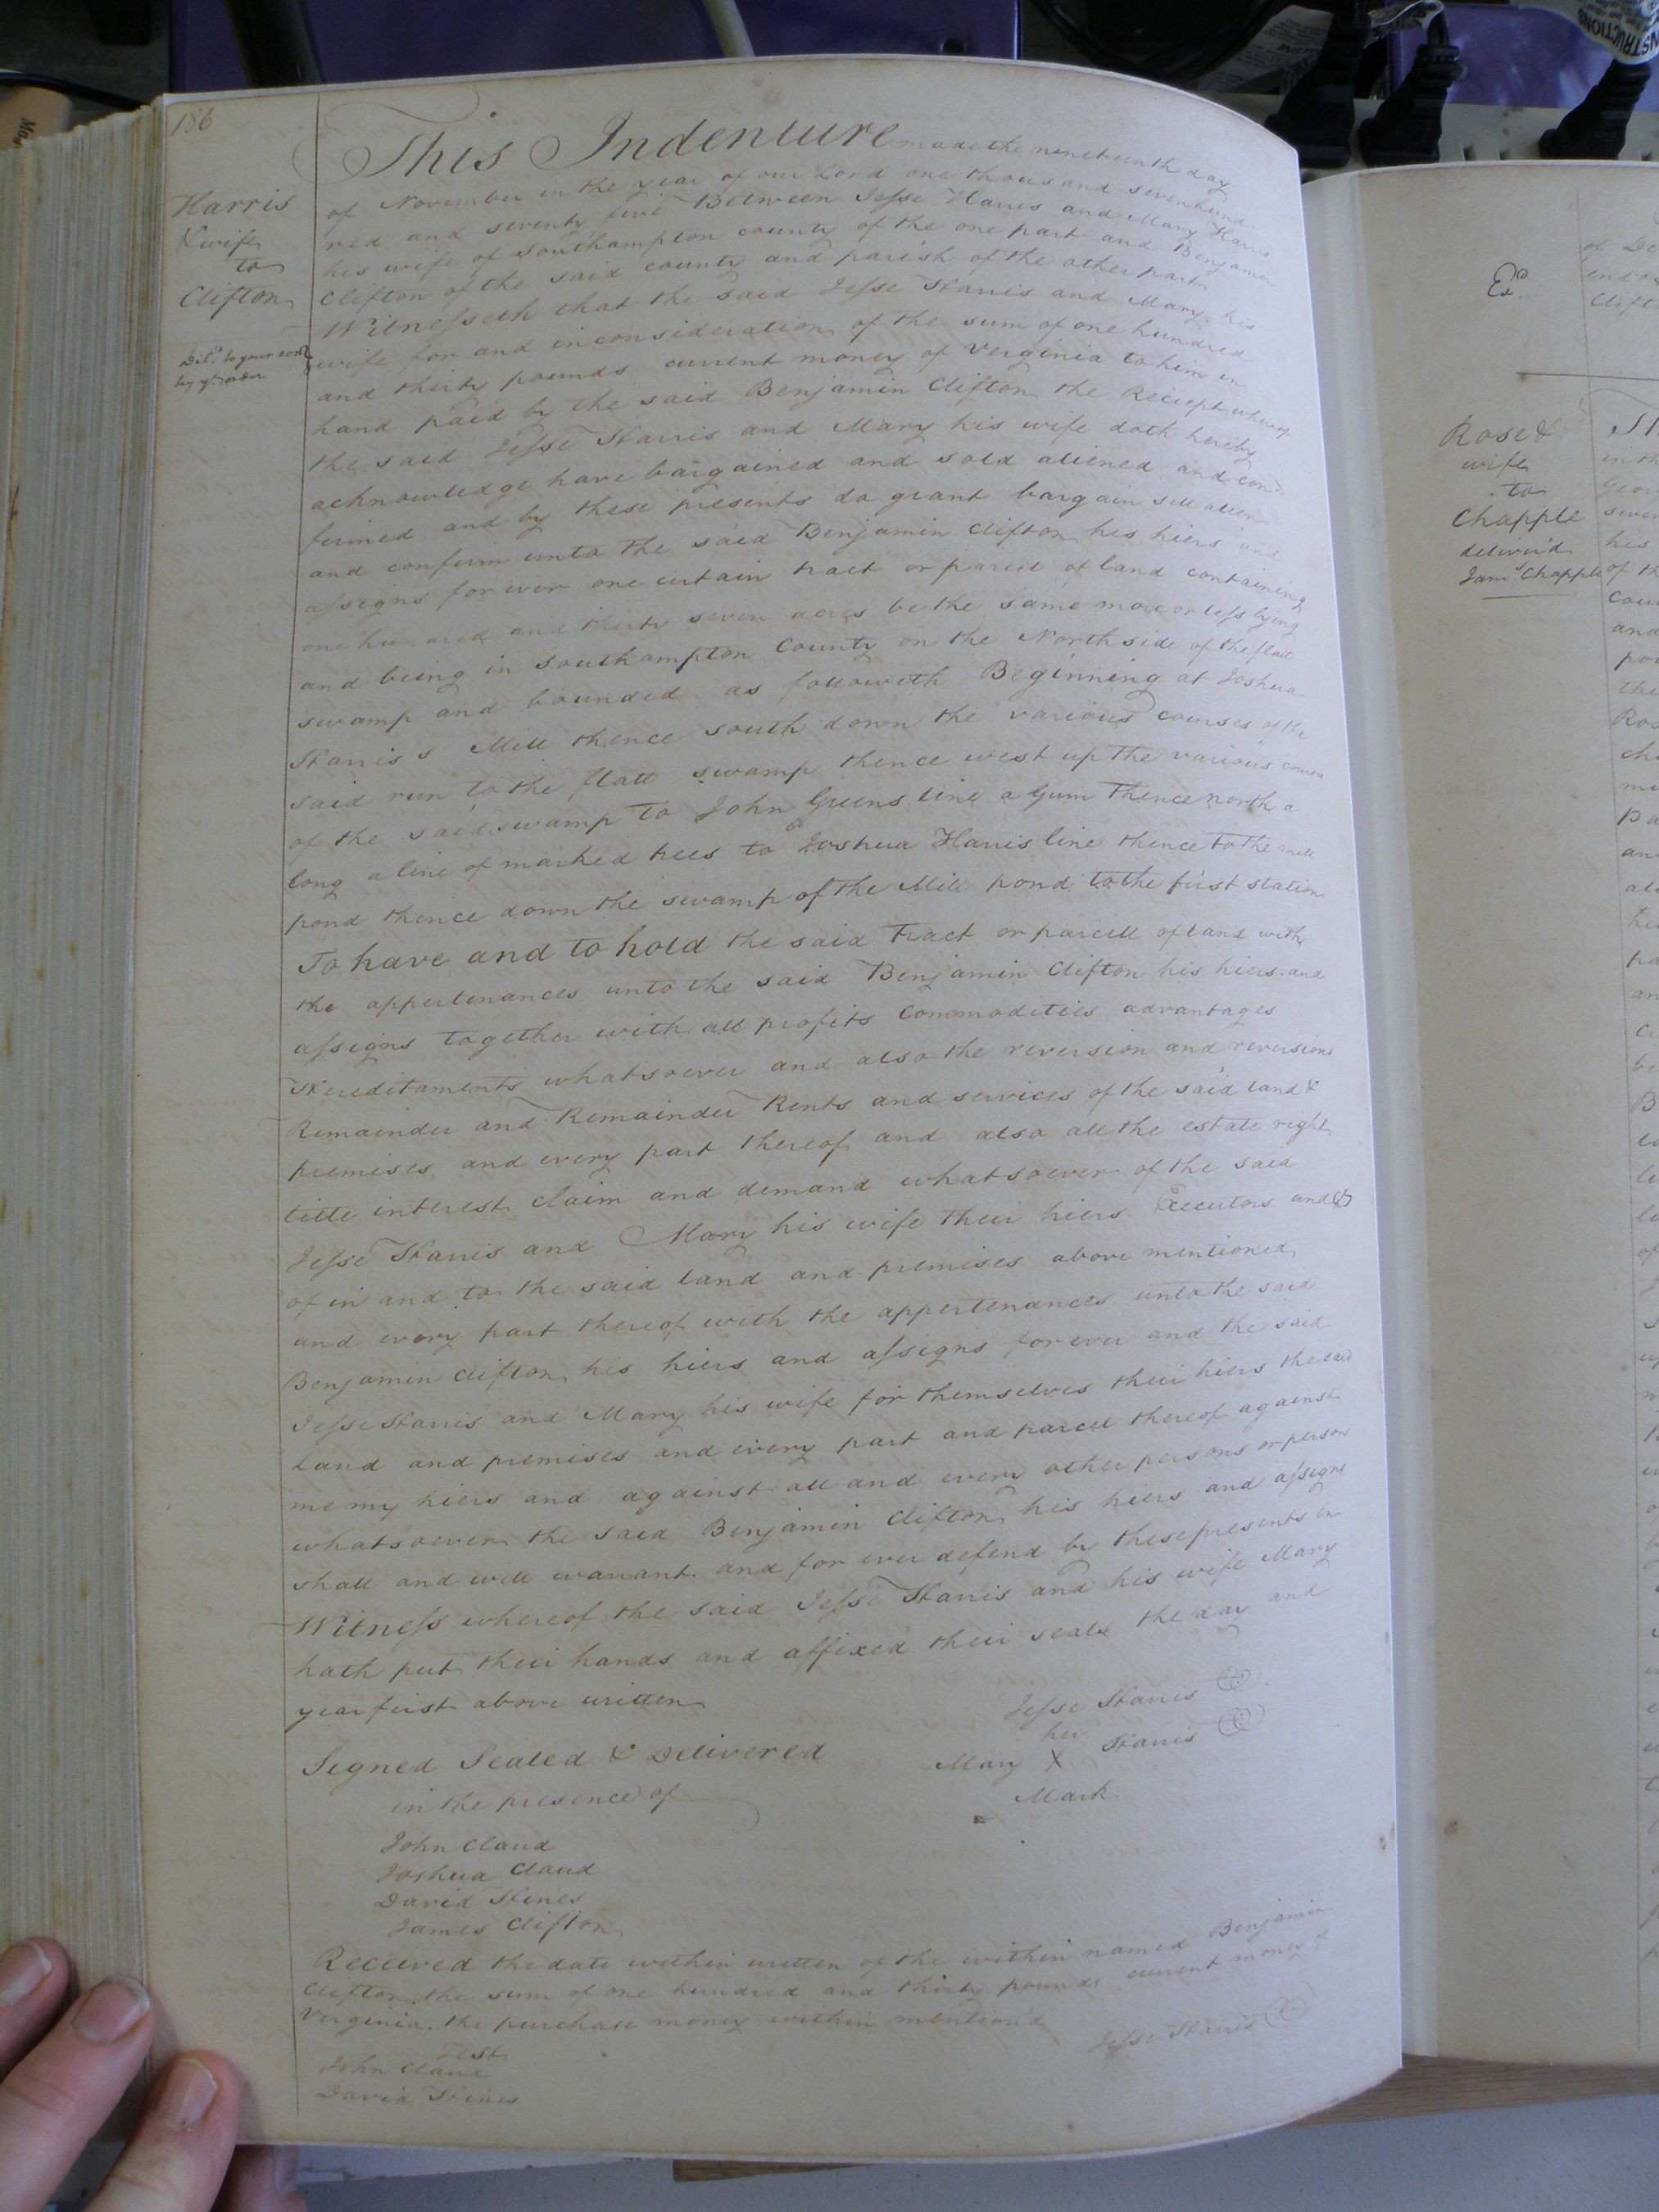 186
Harris
& wife
to
Clifton
by yr order
This Indenture made the nineteenth day
of November in the year of our Lord one thousand seven hund
red and seventy five Between Jesse Harris and Mary Harris
his wife of Southampton county of the one part and Benjamin
Clifton of the said county and parish of the other part
Witnesseth that the said Jesse Harris and Mary his
wife for and in consideration of the sum of one hundred
and thirty pounds current money of Verginia to him in
hand paid by the said Benjamin Clifton the Reciept whereof
the said Jesse Harris and Mary his wife doth hereby
acknowledge have bargained and sold aliened and con-
firmed and by these presents do grant bargain sell alien
and confirm unto the said Benjamin Clifton his hiers and
assigns forever one certain tract or parcel of land containing
one hundred and thirty seven acres be the same more or less lying
and being in Southampton County on the North side of the flatt
swamp and bounded as followeth Beginning at Joshua
Harris s Mill thence south down the various courses of the
said run to the flatt swamp thence west up the various courses
of the said swamp to John Greens line a Gum thence north a
long a line of marked trees to Joshua Harris line thence to the mill
pond thence down the swamp of the Mill pond to the first station
To have and to hold the said Tract or parcell of land with
the appertenances unto the said Benjamin Clifton his hiers and
assigns together with all profits Commodities advantages
Hereditaments whatsoever and also the reversion and reversions
Remainder and Remainder Rents and services of the said land &
premises and every part thereof and also all the estate right
title interest claim and demand whatsoever of the said
Jesse Harris and Mary his wife their hiers Executors and &c
of in and to the said land and premises above mentioned
and every part thereof with the appertenances unto the said
Benjamin Clifton his hiers and assigns forever and the said
Jesse Harris and Mary his wife for themselves their hiers the said
Land and premises and every part and parcell thereof against
me my hiers and against all and every other persons or person
whatsoever the said Benjamin Clifton his hiers and assigns
shall and will warrant and for ever defend by these presents in
Witness whereof the said Jesse Harris and his wife Mary
hath put their hands and affixed their seals the day and
year first above written
Jesse Harris
her
Mary X Harris
Mark
Signed Sealed & Delivered
in the presence of
John Claud
Joshua Claud
David Hines
James Clifton
Received the date within written of the within named Benjamin
Clifton the sum of one hundred and thirty pounds current money of
Verginia the purchase money within mention'd
Jesse Harris
Test
John Claud
David Hines
Rose &
wife
to
Chapple
deliver'd
Jams Chapple